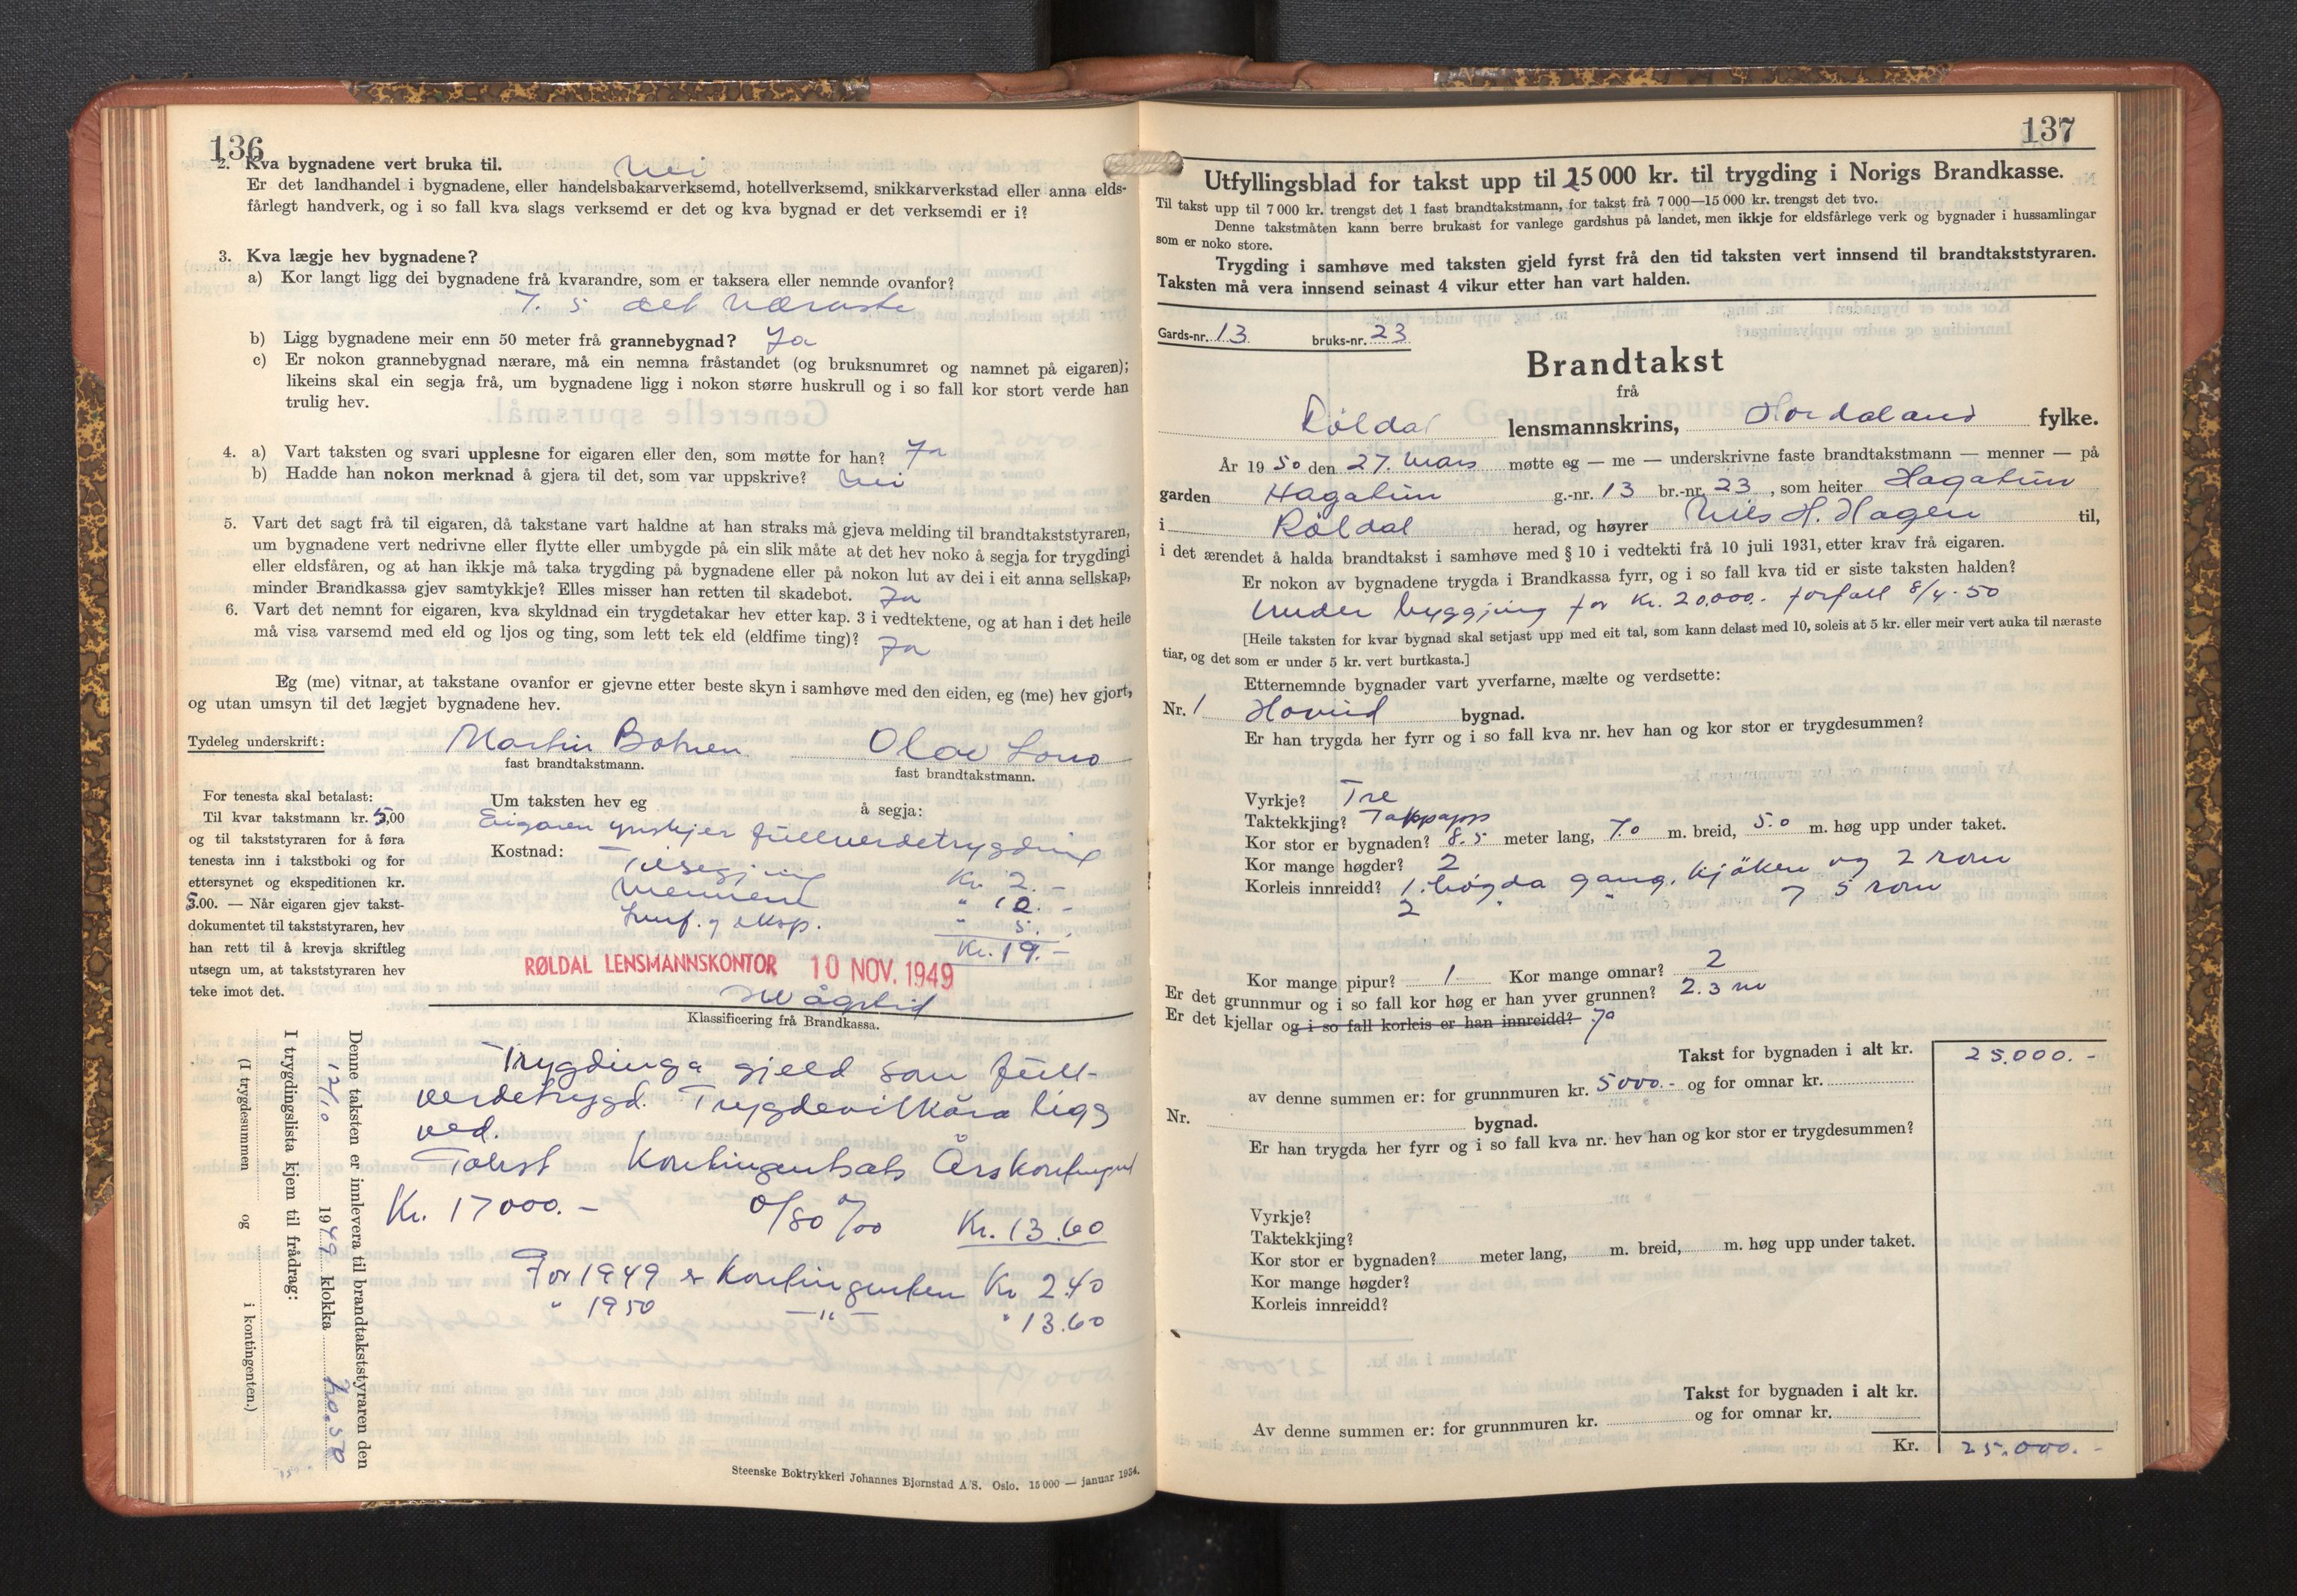 136
2. Kva bygnadene vert bruka til. Nei
Er det landhandel i bygnadene, eller handelsbakarverksemd, hotellverksemd, snikkarverkstad eller anna elds-
fårlegt handverk, og i so fall kva slags verksemd er det og kva bygnad er det verksemdi er i?
3. Kva lægje hev bygnadene?
a) Kor langt ligg dei bygnadene frå kvarandre, som er taksera eller nemnde ovanfor?
7.5 det næraste
b) Ligg bygnadene meir enn 50 meter frå grannebygnad? Ja
c) Er nokon grannebygnad nærare, må ein nemna fråstandet (og bruksnumret og namnet på eigaren);
likeins skal ein segja frå, um bygnadene ligg i nokon større huskrull og i so fall kor stort verde han
trulig hev.
4. a) Vart taksten og svari upplesne for eigaren eller den, som møtte for han? Ja
b) Hadde han nokon merknad å gjera til det, som var uppskrive? Nei
5. Vart det sagt frå til eigaren, då takstane vart haldne at han straks må gjeva melding til brandtakststyraren,
um bygnadene vert nedrivne eller flytte eller umbygde på ein slik måte at det hev noko å segja for trygdingi
eller eldsfåren, og at han ikkje må taka trygding på bygnadene eller på nokon lut av dei i eit anna sellskap,
minder Brandkassa gjev samtykkje? Elles misser han retten til skadebot. Ja
6. Vart det nemnt for eigaren, kva skyldnad ein trygdetakar hev etter kap. 3 i vedtektene, og at han i det heile
må visa varsemd med eld og ljos og ting, som lett tek eld (eldfime ting)? Ja
Eg (me) vitnar, at takstane ovanfor er gjevne etter beste skyn i samhøve med den eiden, eg (me) hev gjort,
og utan umsyn til det lægjet bygnadene hev.
Tydeleg underskrift: Martin Botnen Olav Lono
fast brandtakstmann. fast brandtakstmann.
For tenesta skal betalast:
Til kvar takstmann kr. 5,00
og til takststyraren for å føra
tenesta inn i takstboki og for
ettersynet og ekspeditionen kr.
5.00. — Når eigaren gjev takst-
dokumentet til takststyraren, hev
han rett til å krevja skriftleg
utsegn um, at takststyraren hev
teke imot det.
Um taksten hev eg å segja:
Eigaren ynskjer fullverdetrygding
Kostnad: Tilsegjing Kr. 2.-
Mennene " 10.-
Innf. og eksp. " 5.
Kr. 19.-
RØLDAL LENSMANNSKONTOR 10 NOV. 1949
Klassificering frå Brandkassa.
Trygdinga gjeld som full-
verdetrygd. Trygdevilkåra ligg
ved.
Takst Kontingentsats Årskontingent
Kr. 17000.- 0/80 ‰ Kr. 13.60
For 1949 er kontingenten Kr 2.40
" 1950 —"— " 13.60
Denne taksten er innlevera til brandtakststyraren den
12/10 1949 klokka 20.50
I trygdingslista kjem til frådrag:
(I trygdesummen og i kontingenten.)
Steenske Boktrykkeri Johannes Bjørnstad A/S. Oslo. 15 000 — januar 1934.
137
Utfyllingsblad for takst upp til 25 000 kr. til trygding i Norigs Brandkasse.
Til takst upp til 7 000 kr. trengst det 1 fast brandtakstmann, for takst frå 7 000—15 000 kr. trengst det tvo.
Denne takstmåten kann berre brukast for vanlege gardshus på landet, men ikkje for eldsfårlege verk og bygnader i hussamlingar
som er noko store.
Trygding i samhøve med taksten gjeld fyrst frå den tid taksten vert innsend til brandtakststyraren.
Taksten må vera innsend seinast 4 vikur etter han vart halden.
Gards-nr. 13 bruks-nr. 23
Brandtakst
frå
Röldal lensmannskrins, Hordaland fylke.
År 1950 den 27. Mars møtte eg — me — underskrivne faste brandtakstmann — menner — på
garden Hagatun g.-nr. 13 br.-nr. 23, som heiter Hagatun
i Röldal herad, og høyrer Nils H. Hagen til,
i det ærendet å halda brandtakst i samhøve med § 10 i vedtekti frå 10 juli 1931, etter krav frå eigaren.
Er nokon av bygnadene trygda i Brandkassa fyrr, og i so fall kva tid er siste taksten halden?
Under byggjing for Kr. 20.000.- forfall 8/4-50
[Heile taksten for kvar bygnad skal setjast upp med eit tal, som kann delast med 10, soleis at 5 kr. eller meir vert auka til næraste
tiar, og det som er under 5 kr. vert burtkasta.]
Etternemnde bygnader vart yverfarne, mælte og verdsette:
Nr. 1 Hovud bygnad.
Er han trygda her fyrr og i so fall kva nr. hev han og kor stor er trygdesummen?
Vyrkje? Tre
Taktekkjing? Takpapp
Kor stor er bygnaden? 8.5 meter lang, 7.0 m. breid, 5.0 m. høg upp under taket.
Kor mange høgder? 2
Korleis innreidd? 1. högda gang, kjöken og 2 rom
2 " " og 5 rom
Kor mange pipur? 1 Kor mange omnar? 2
Er det grunnmur og i so fall kor høg er han yver grunnen? 2.3 m
Er det kjellar og i so fall korleis er han innreidd? Ja
Takst for bygnaden i alt kr. 25.000.-
av denne summen er: for grunnmuren kr. 5000.- og for omnar kr.
Nr. bygnad.
Er han trygda her fyrr og i so fall kva nr. hev han og kor stor er trygdesummen?
Vyrkje?
Taktekkjing?
Kor stor er bygnaden? meter lang, m. breid, m. høg upp under taket.
Kor mange høgder?
Korleis innreidd?
Takst for bygnaden i alt kr.
Av denne summen er: for grunnmuren kr. og for omnar kr.
Kr. 25.000.-